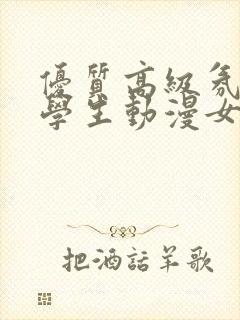 優質高級氛
學生動漫女
把酒話羊歌